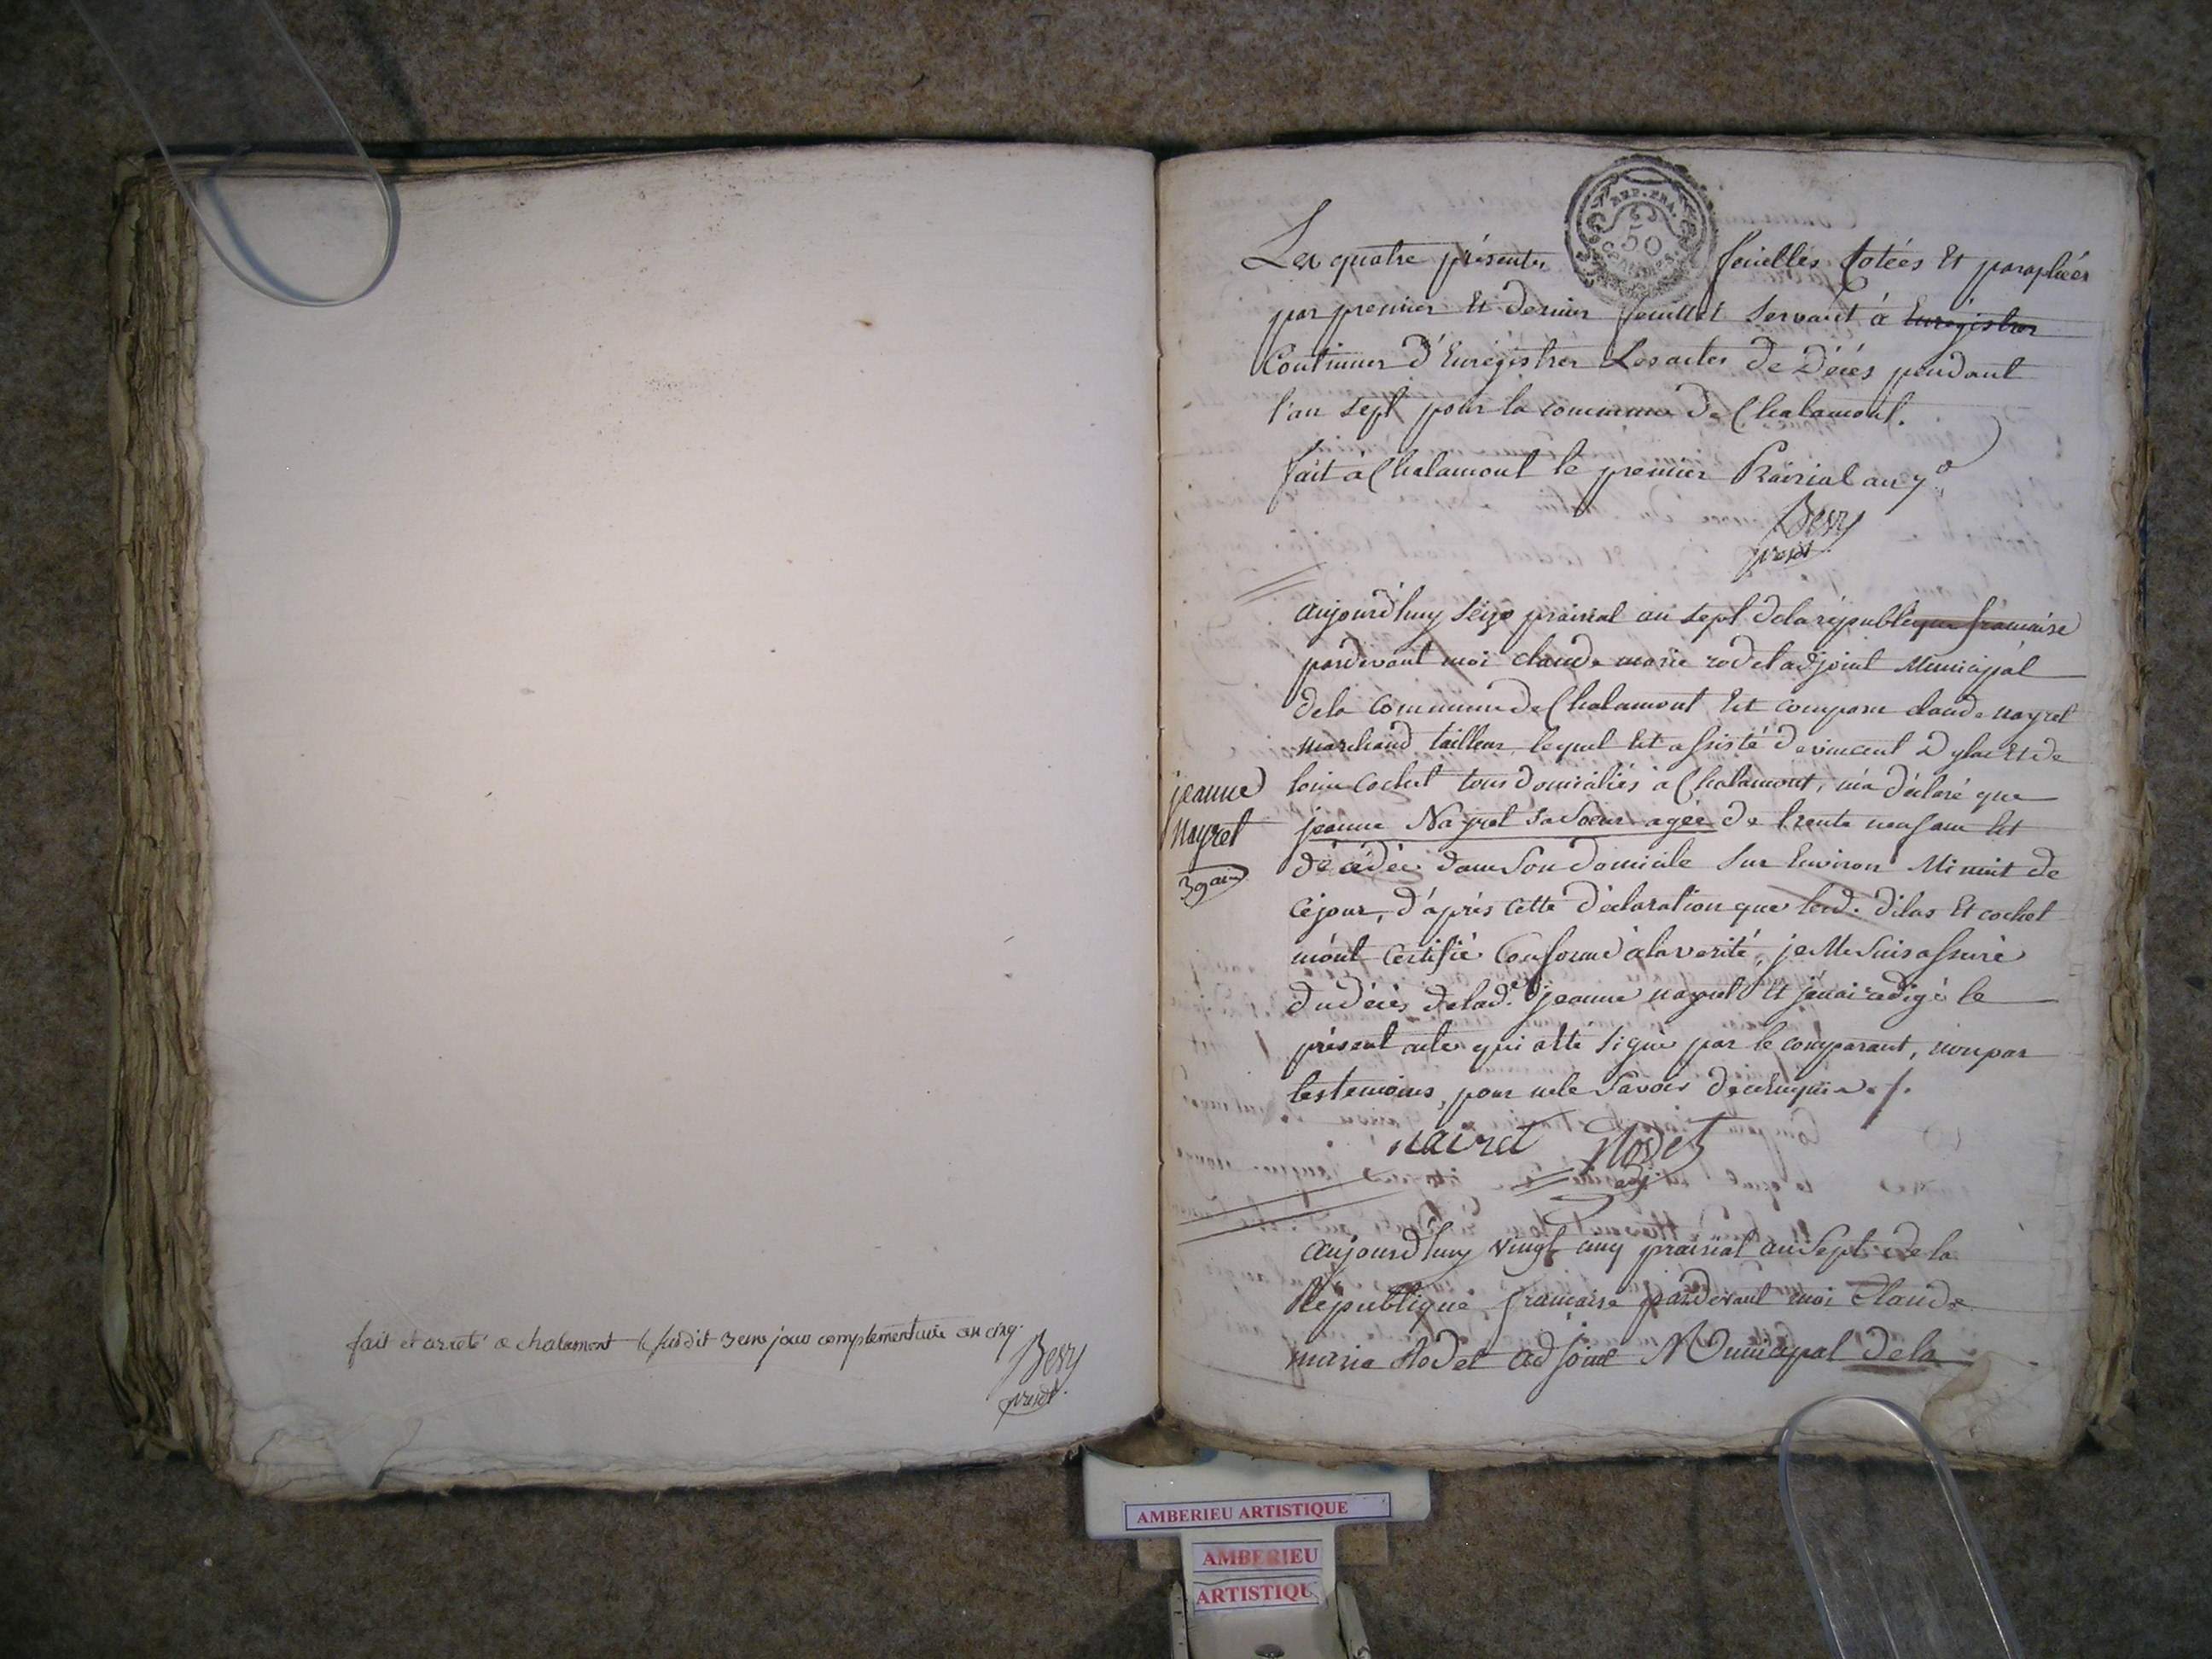 fait et arreté a chalamont le susdit 3eme jour complementaire an cinq.
Besy
presdt.
REP. FRA.
50
CENTIMES
Les quatre présentes feuilles Cotées Et paraphées
par premier Et dernier feuillet servant à Enrégistrer
Continuer d'Enrégistrer Les actes de Décés pendant
l'an sept pour la commune de Chalamont.
fait à Chalamont le premier Prairial an 7e
presdt
aujourd'huy seize prairial an sept de la république francaise
pardevant moi claude marie rodet adjoint Municipal
dela Commune de Chalamont Est comparu claude nayret
marchand tailleur lequel Est assisté de vincent Et de
louis Cochet tous domiciliés à Chalamont, m'a déclaré que
jeanne
Nayret
39 ans
jeanne Nayret sa soeur agée de trente neuf ans Est
décédée dans son domicile sur Environ Minuit de
Cejour, d'après Cette déclaration que lesd. dilas Et cochet
m'ont Certifié Conforme à la verité, je Me suis assuré
du décès de lad.e jeanne nayret Et j'en ai redigé le
présent acte qui a Eté signé par le comparant, non par
les temoins, pour ne le savoir de ce Enquis ./.
nairet Rodet
adj
aujourd'huy vingt cinq prairial an sept de la
République francaise pardevant moi Claude
marie Rodet adjoint Municipal dela
AMBERIEU ARTISTIQUE
AMBERIEU
ARTISTIQU